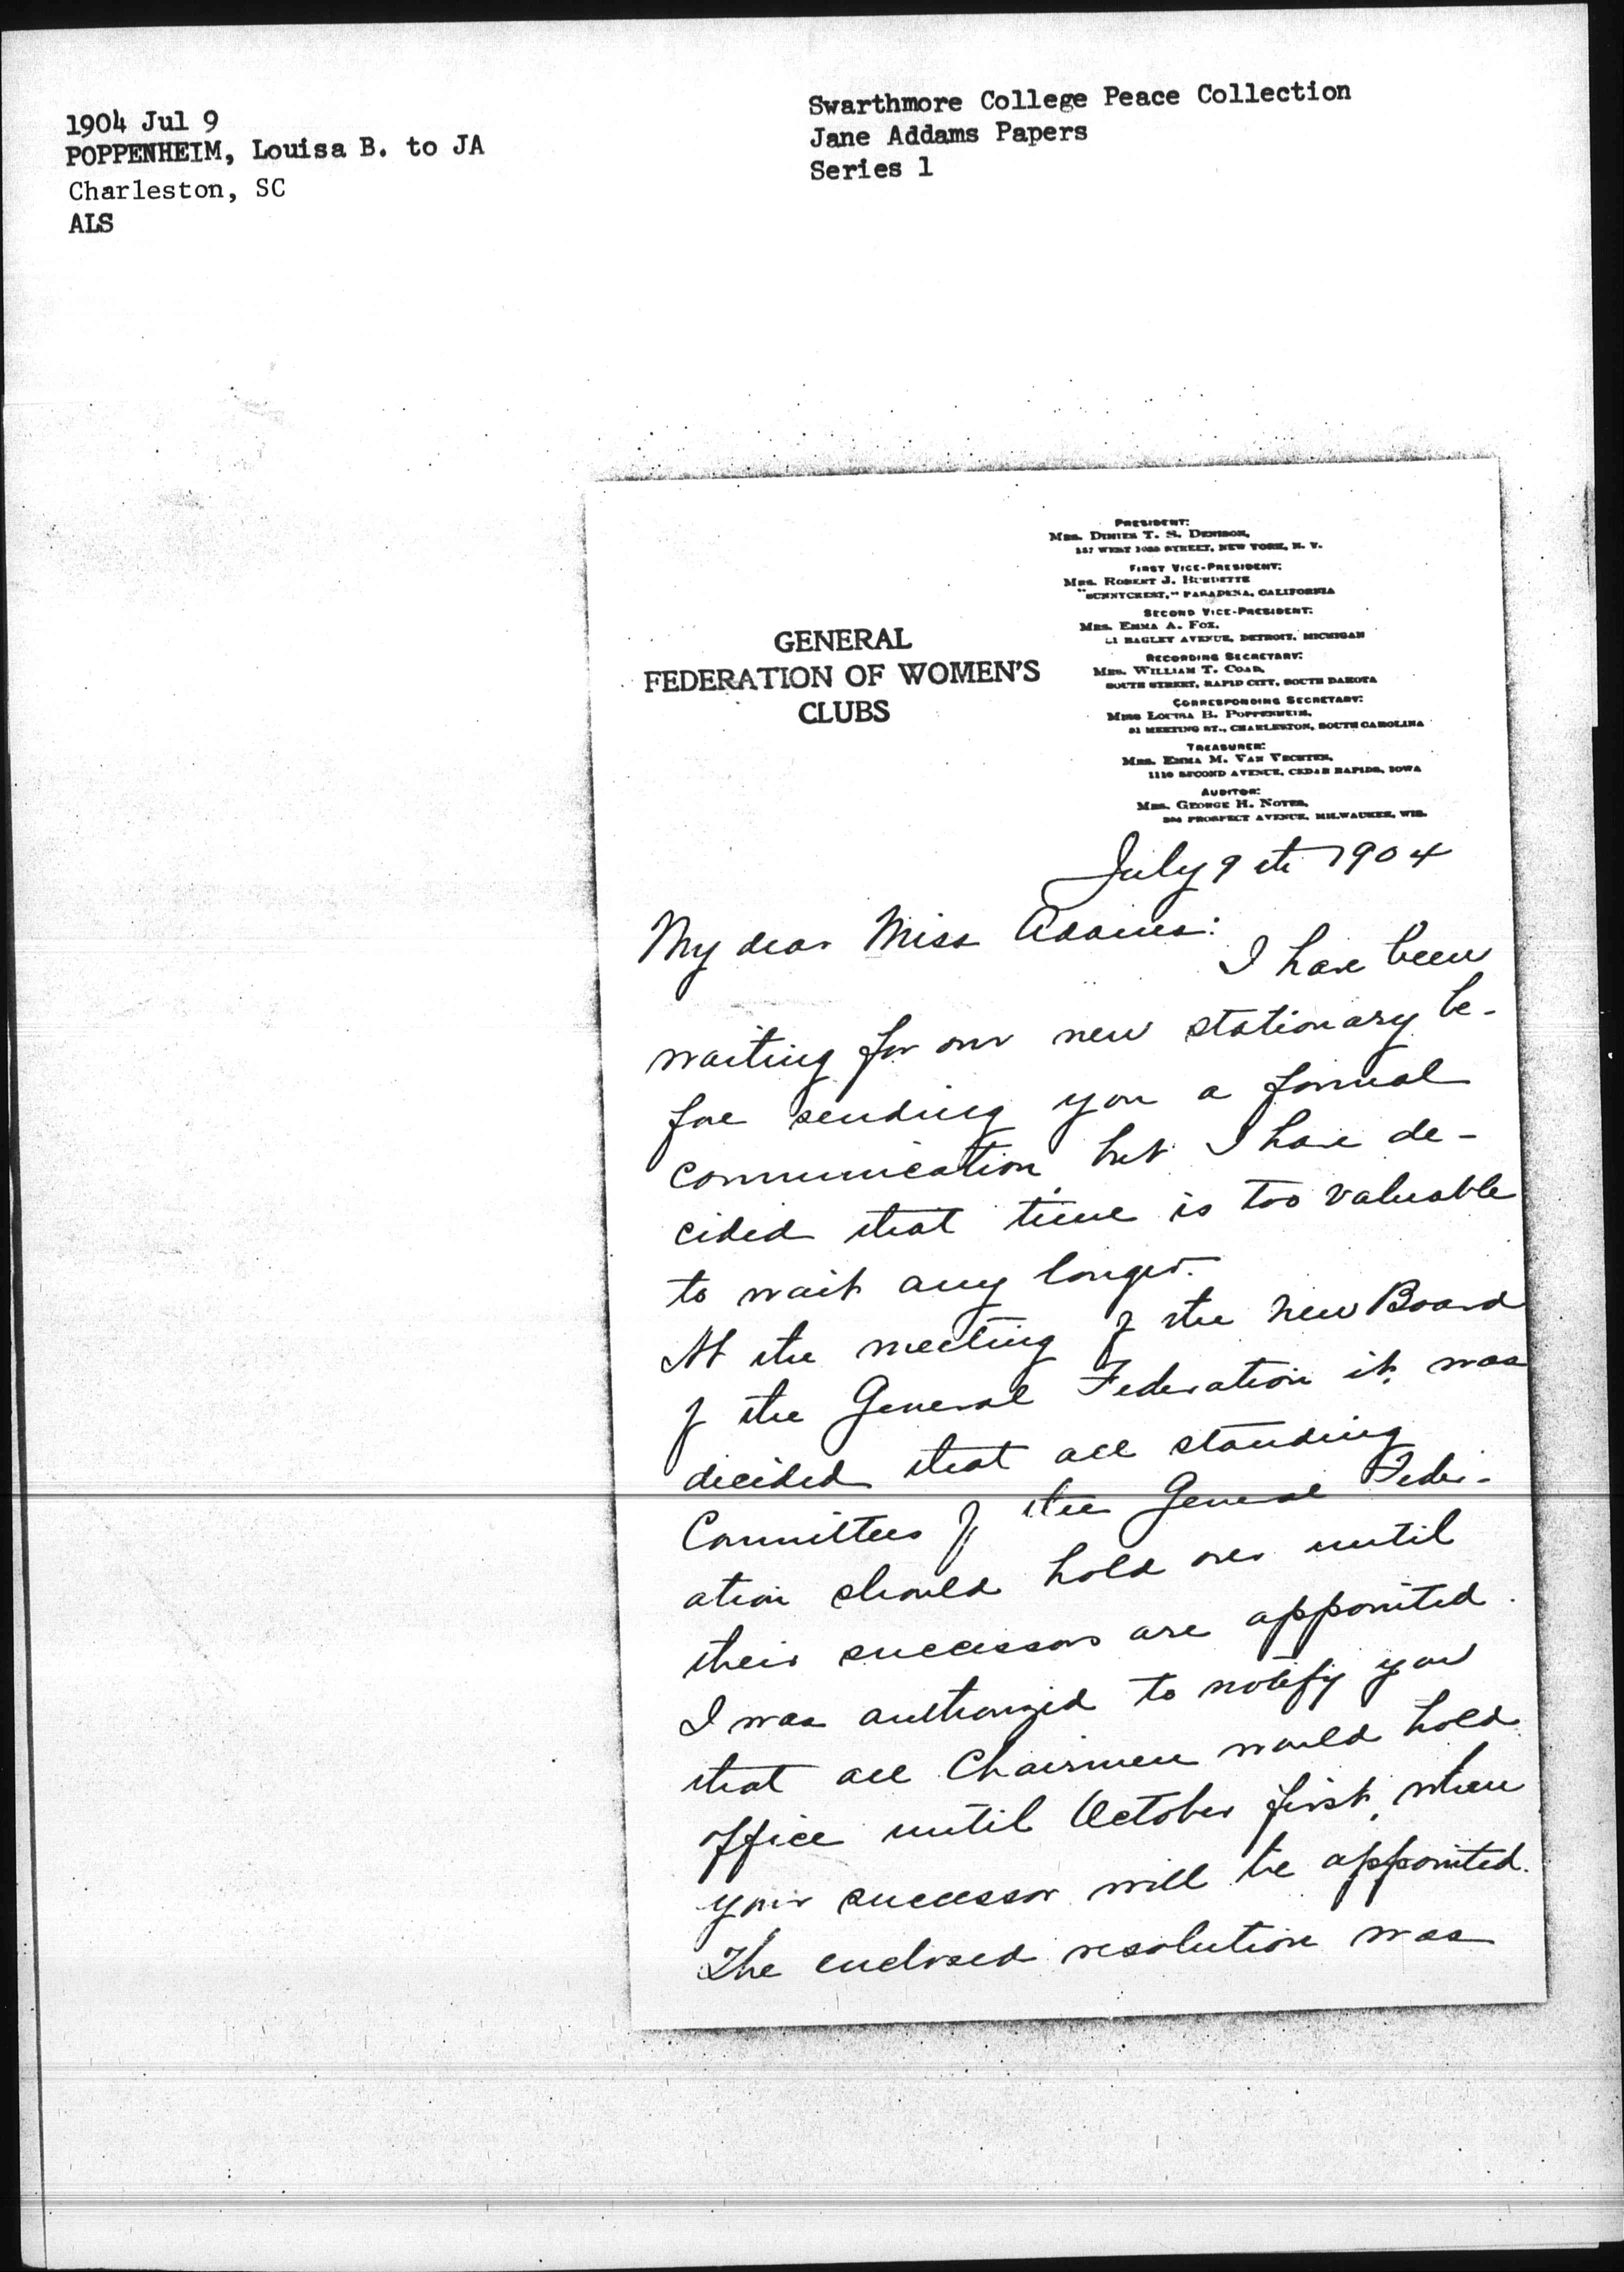 1904 Jul 9
POPPENHEIM, Louisa B. to JA
Charleston, SC
ALS
Swarthmore College Peace Collection
Jane Addams Papers
Series 1
GENERAL
FEDERATION OF WOMEN'S
CLUBS
PRESIDENT:
MRS. DIMIES T. S. DENISON,
WEST STREET, NEW YORK, N. Y.
FIRST VICE-PRESIDENT:
MRS. ROBERT J. BURDETTE
"SUNNYCREST," PASADENA, CALIFORNIA
SECOND VICE-PRESIDENT:
MRS. EMMA A. FOX,
BAGLEY AVENUE, DETROIT, MICHIGAN
RECORDING SECRETARY:
MRS. WILLIAM T. COAD,
SOUTH STREET, RAPID CITY, SOUTH DAKOTA
CORRESPONDING SECRETARY:
MISS LOUISA B. POPPENHEIM,
31 MEETING ST., CHARLESTON, SOUTH CAROLINA
TREASURER:
MRS. EMMA M. VAN VECHTEN,
SECOND AVENUE, CEDAR RAPIDS, IOWA
AUDITOR:
MRS. GEORGE H. NOYES,
PROSPECT AVENUE, MILWAUKEE, WIS.
July 9th 1904
My dear Miss Addams:
I have been
waiting for our new stationary be-
fore sending you a formal
communication but I have de-
cided that time is too valuable
to wait any longer.
At the meeting of the new Board
of the General Federation it was
decided that all standing
Committees of the General Feder-
ation should hold over until
their successors are appointed.
I was authorized to notify you
that all Chairmen would hold
office until October first, when
your successor will be appointed.
The enclosed resolution was